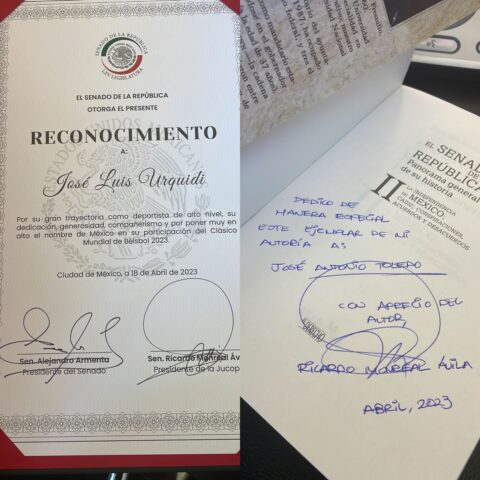 SENADO DE LA REPÚBLICA
LXV LEGISLATURA
EL SENADO DE LA REPÚBLICA
OTORGA EL PRESENTE
RECONOCIMIENTO
A:
José Luis Urquidi
Por su gran trayectoria como deportista de alto nivel, su
dedicación, generosidad, compañerismo y por poner muy en
alto el nombre de México en su participación del Clásico
Mundial de Béisbol 2023.
Ciudad de México, a 18 de Abril de 2023
Sen. Alejandro Armenta
Presidente del Senado
Sen. Ricardo Monreal Áv
Presidente de la Jucop
EL SENADO
DE LA
REPÚBLICA
Panorama general
de su historia
II
LA INDEPENDENCIA
DE MÉXICO.
ACUERDOS Y DESACUERDOS
DEDICO DE
MANERA ESPECIAL
ESTE EJEMPLAR DE MI
AUTORÍA A:
JOSÉ ANTONIO TOLEDO
CON APRECIO DEL
AUTOR,
RICARDO MONREAL ÁVILA
ABRIL, 2023